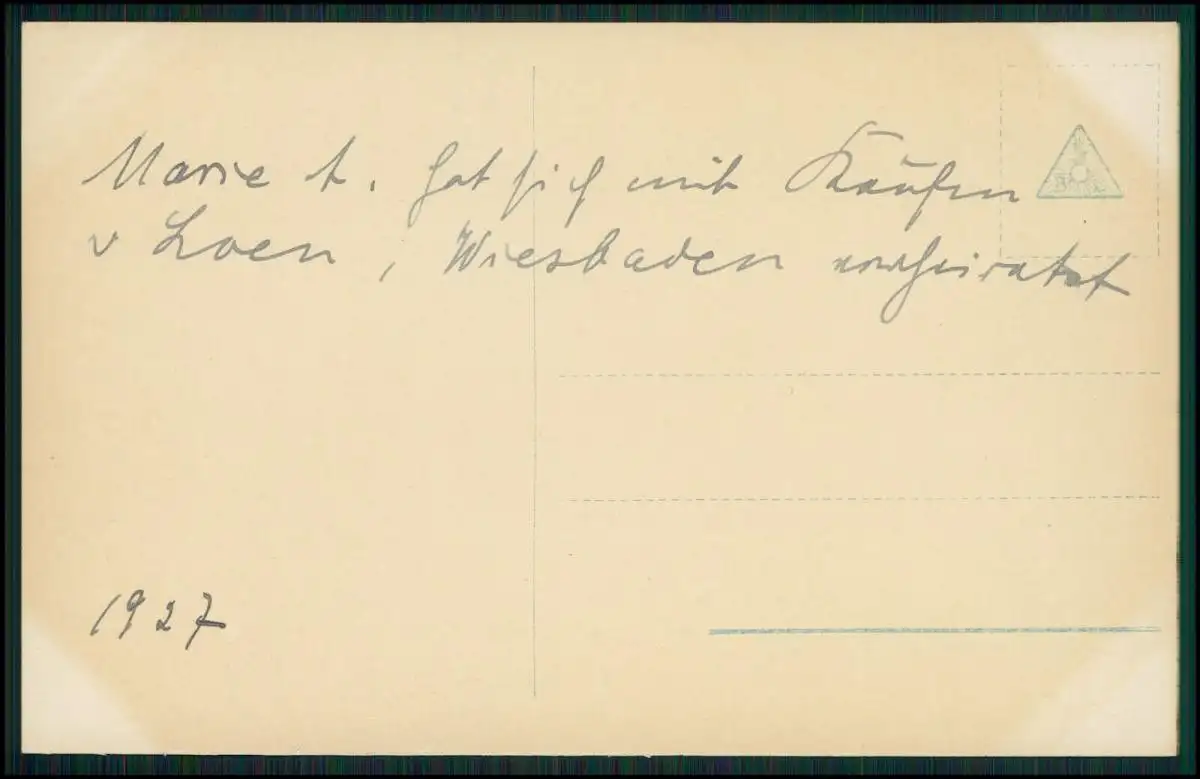 Marie t. hat sich mit
v Loen, Wiesbaden verheiratet
1927